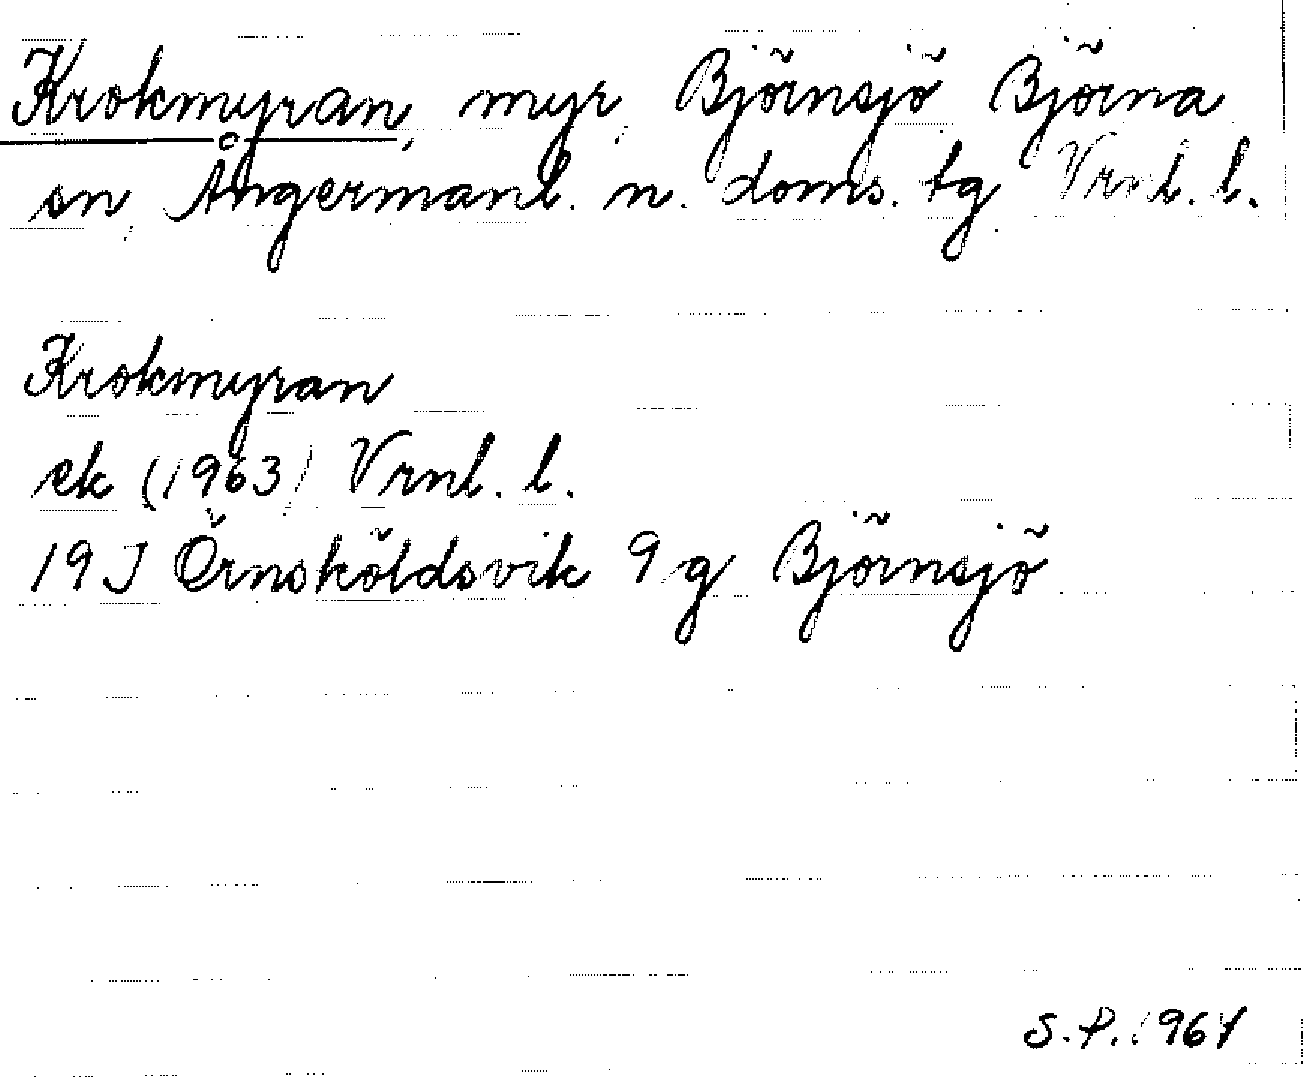 Krokmyran, myr, Björnsjö Björna
sn, Ångermanl. n. doms. tg Vrnl. l.
Krokmyran
ek (1963) Vrnl. l.
19J Örnsköldsvik 9 g Björnsjö
S.P. 1967